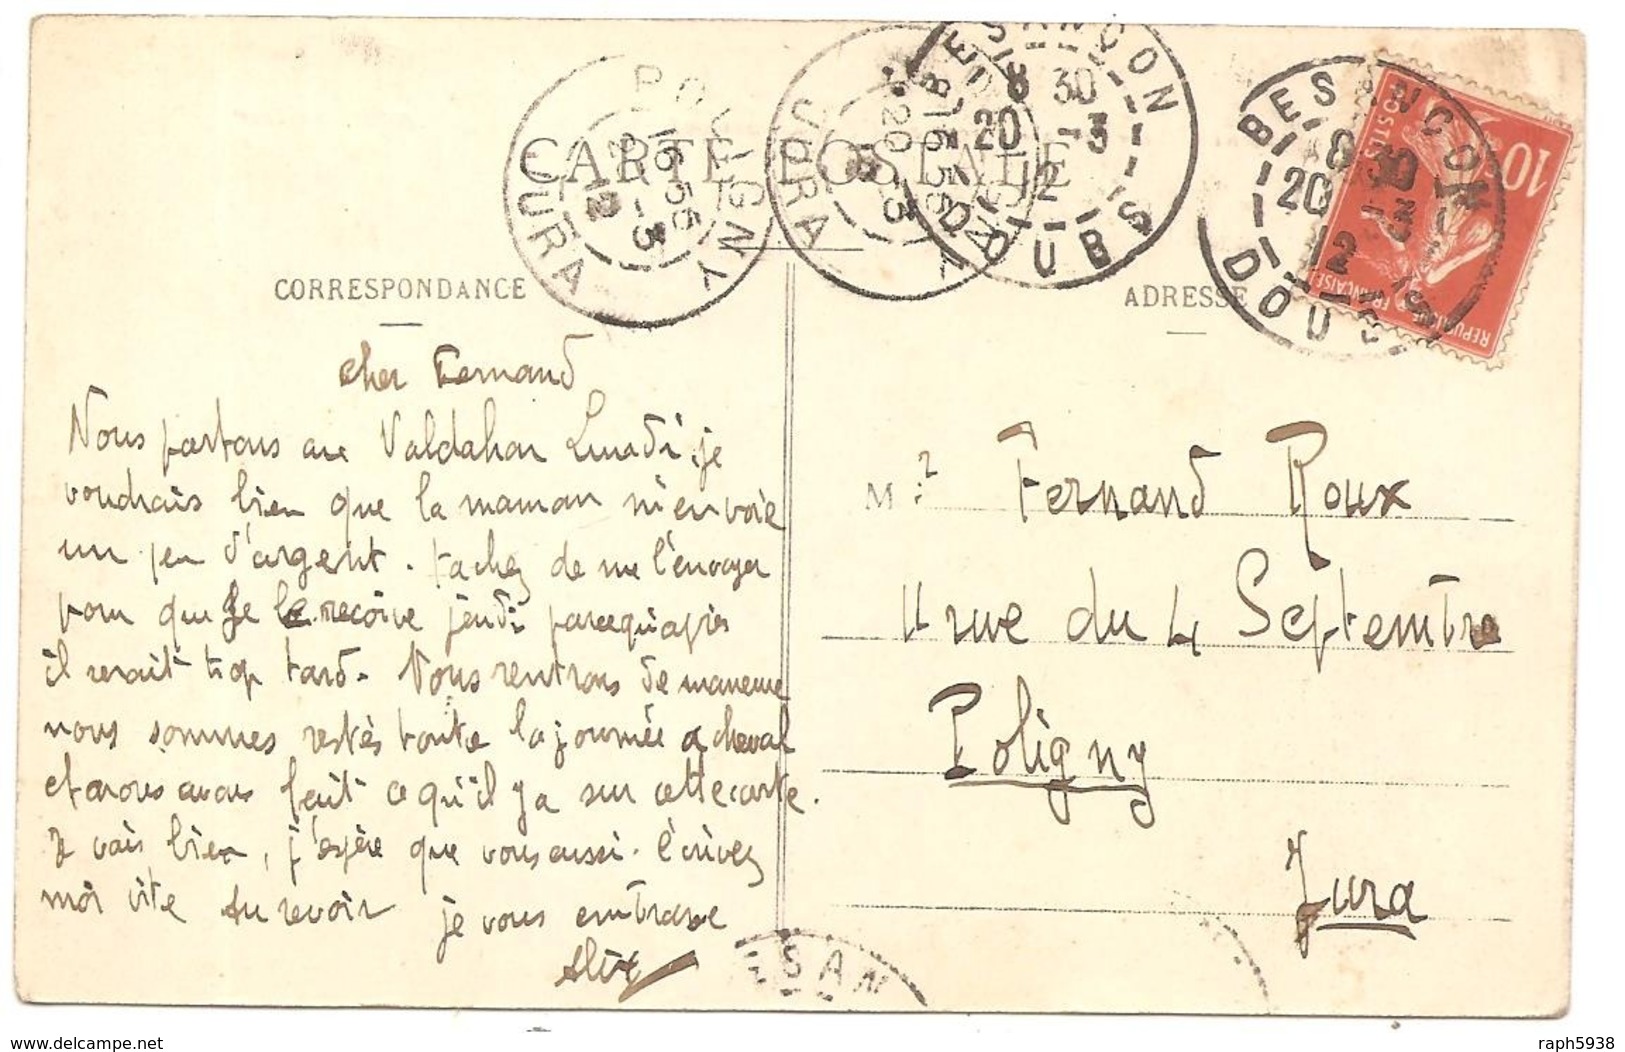 CARTE POSTALE
POLIGNY
16 55
20 -3
12
JURA
POLIGNY
16 55
20 -3
12
JURA
BESANÇON
8 30
20 -3
12
DOUBS
BESANÇON
8 30
20 -3
12
DOUBS
10c
POSTES
REPUBLIQUE FRANCAISE
CORRESPONDANCE
cher Fernand
Nous partons au Valdahon Lundi je
voudrais bien que la maman m'envoie
un peu d'argent. tachez de me l'envoyer
pour que je le recoive jeudi parcequ'apres
il serait trop tard. Nous rentrons de manoeuvre
nous sommes restés toute la journée a cheval
et nous avons fait ce qu'il y a sur cette carte.
Je vais bien, j'espère que vous aussi. Ecrivez
moi vite Au revoir je vous embrasse
Alix
ADRESSE
M r Fernand Roux
11 rue du 4 Septembre
Poligny
Jura
ESAN
delcampe.net
raph5938